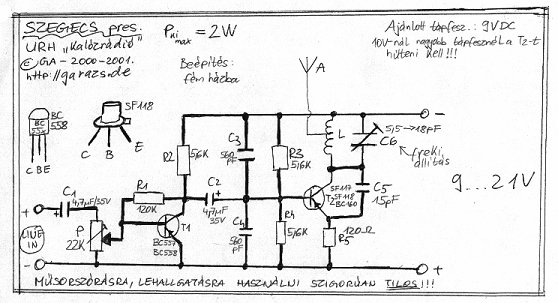 SZEGECS pres.
URH „Kalózrádió”
© GA - 2000-2001.
http://garazs.de
P ki max = 2W
Beépítés:
fém házba
Ajánlott tápfesz.: 9VDC
10V-nál nagyobb tápfesznél a T2-t
hűteni kell!!!
BC
55x
BC
558
C B E
SF118
C B E
R2
5,6K
C3
560
pF
R3
5,6K
A
L
5,5→18pF
C6
freki.
állítás
C1
4,7µF/35V
R1
120K
C2
4,7µF
35V
T1
BC557
BC558
SF117
T2 SF118
BC160
C5
15pF
9...21V
LINE
IN
P
22K
C4
560
pF
R4
5,6K
R5
120Ω
+
-
-
+
MŰSORSZÓRÁSRA, LEHALLGATÁSRA HASZNÁLNI SZIGORÚAN TILOS!!!